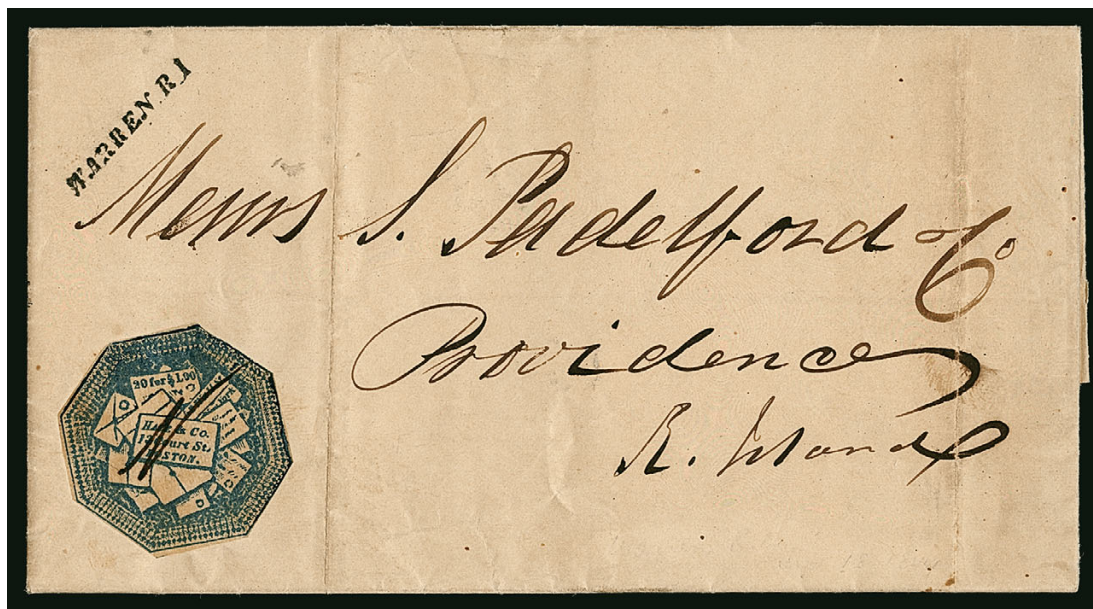 WARREN. R I
Messrs S. Padelford & Co
Providence
R. Island
20 for $1.00
HALE & Co.
13 Court St.
BOSTON.